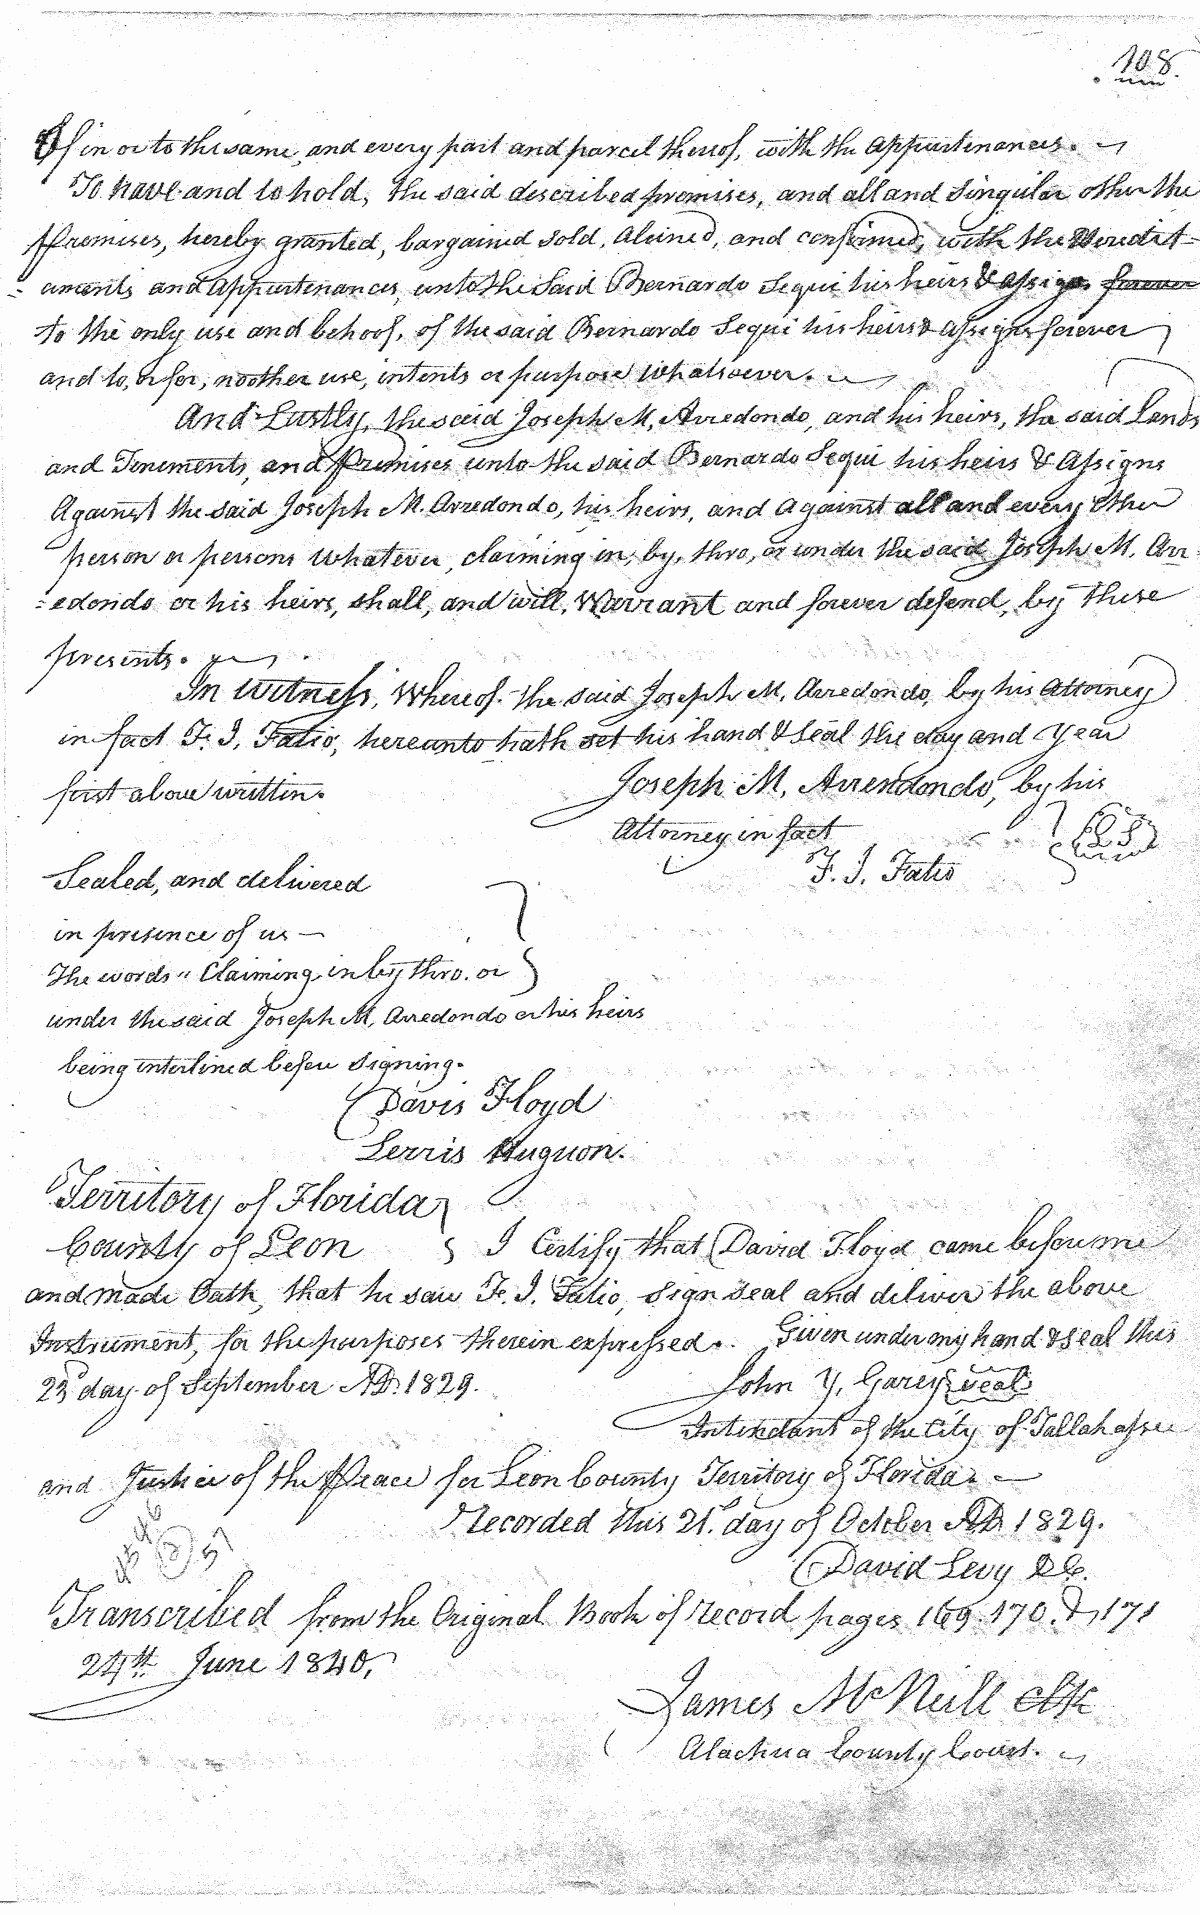 108.
Of in or to the same, and every part and parcel thereof, with the Appurtenances.
To have and to hold, the said described premises, and all and Singular other the
Premises, hereby granted, bargained sold, Aleined, and confirmed, with the Heredit-
=aments and Appurtenances, unto the Said Bernardo Sequi his heirs & assigns forever
to the only use and behoof, of the said Bernardo Sequi his heirs & assigns forever
and to, or for, no other use, intents or purpose whatsoever.
And Lastly, the said Joseph M. Arredondo, and his heirs, the said Lands
and Tenements, and Premises unto the said Bernardo Sequi his heirs & Assigns
Against the said Joseph M. Arredondo, his heirs, and against all and every other
person or persons whatever, claiming in, by, thro, or under the said Joseph M. Arr-
=edondo or his heirs, shall, and will, Warrant and forever defend, by these
presents.
In Witness, Whereof. the said Joseph M, Arredondo, by his Attorney
in fact F. J. Fatio, hereunto hath set his hand & Seal the day and year
first above written.
Joseph M, Arrendondo, by his
Attorney in fact
F. J. Fatio
LS
Sealed, and delivered
in presence of us —
The words " Claiming in by thro. or
under the said Joseph M, Arredondo or his heirs
being interlined before signing.
Davis Floyd
Lerris Huguon.
Territory of Florida
County of Leon
I Certify that David Floyd came before me
and made Oath, that he saw F. J. Fatio, sign seal and deliver the above
Instrument, for the purposes therein expressed. Given under my hand & seal this
23d day of September AD. 1829.
John Y, Garey seal
Intendant of the City of Tallahassee
and Justice of the Peace for Leon County Territory of Florida.
Recorded this 21st day of October AD. 1829.
David Levy DC.
Transcribed from the Original Book of record pages 169. 170. & 171
24th June 1840,
James McNeill clk
Alachua County Court.